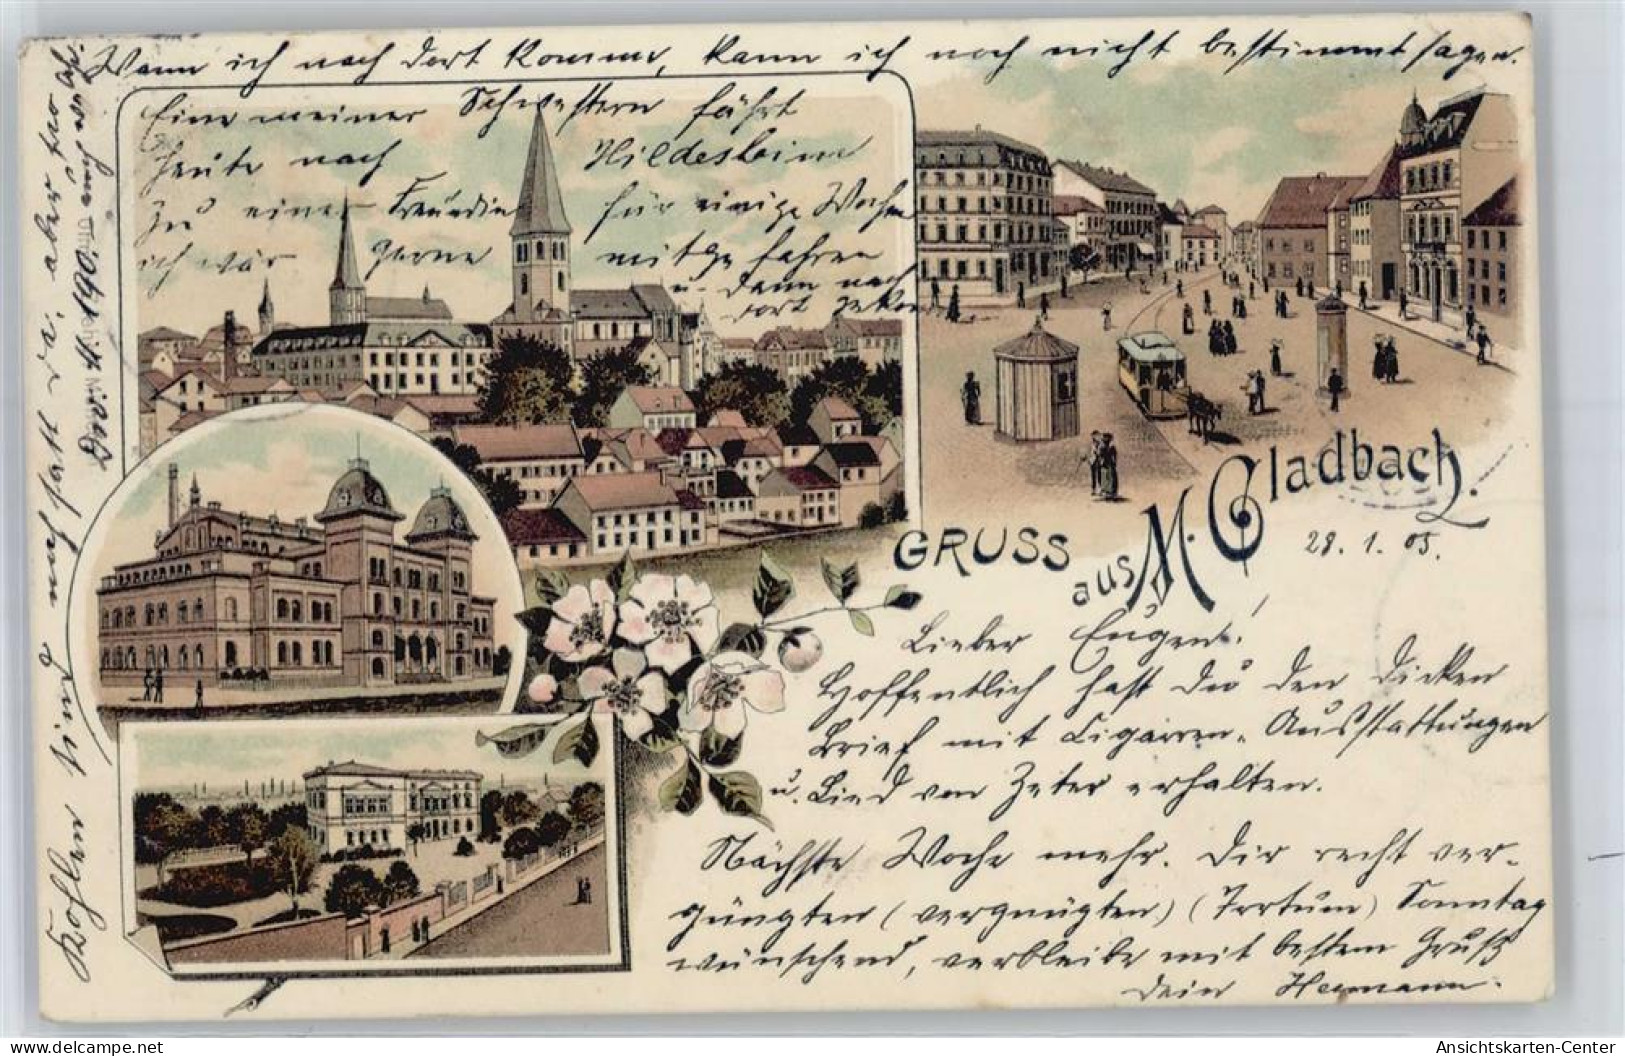 Wann ich nach dort komme, kann ich noch nicht bestimmt sagen.
Eine meiner Schwestern fährt
heute nach Hildesheim
zu einer Freundin für einige Wochen
ich wär gerne mitgefahren
u. dann nach
dort gekom
GRUSS
aus M. Gladbach.
28. 1. 05.
Lieber Eugen!
Hoffentlich hast Du den dicken
Brief mit Cigarren-Ausstattungen
u. Lied von Peter erhalten.
Nächste Woche mehr. Dir recht ver-
güngten (vergnügten) (Irrtum) Sonntag
wünschend, verbleibe mit bestem Gruß
Dein Hermann.
Kohlen sind noch satt da, aber
Ansichtskarten-Center
delcampe.net